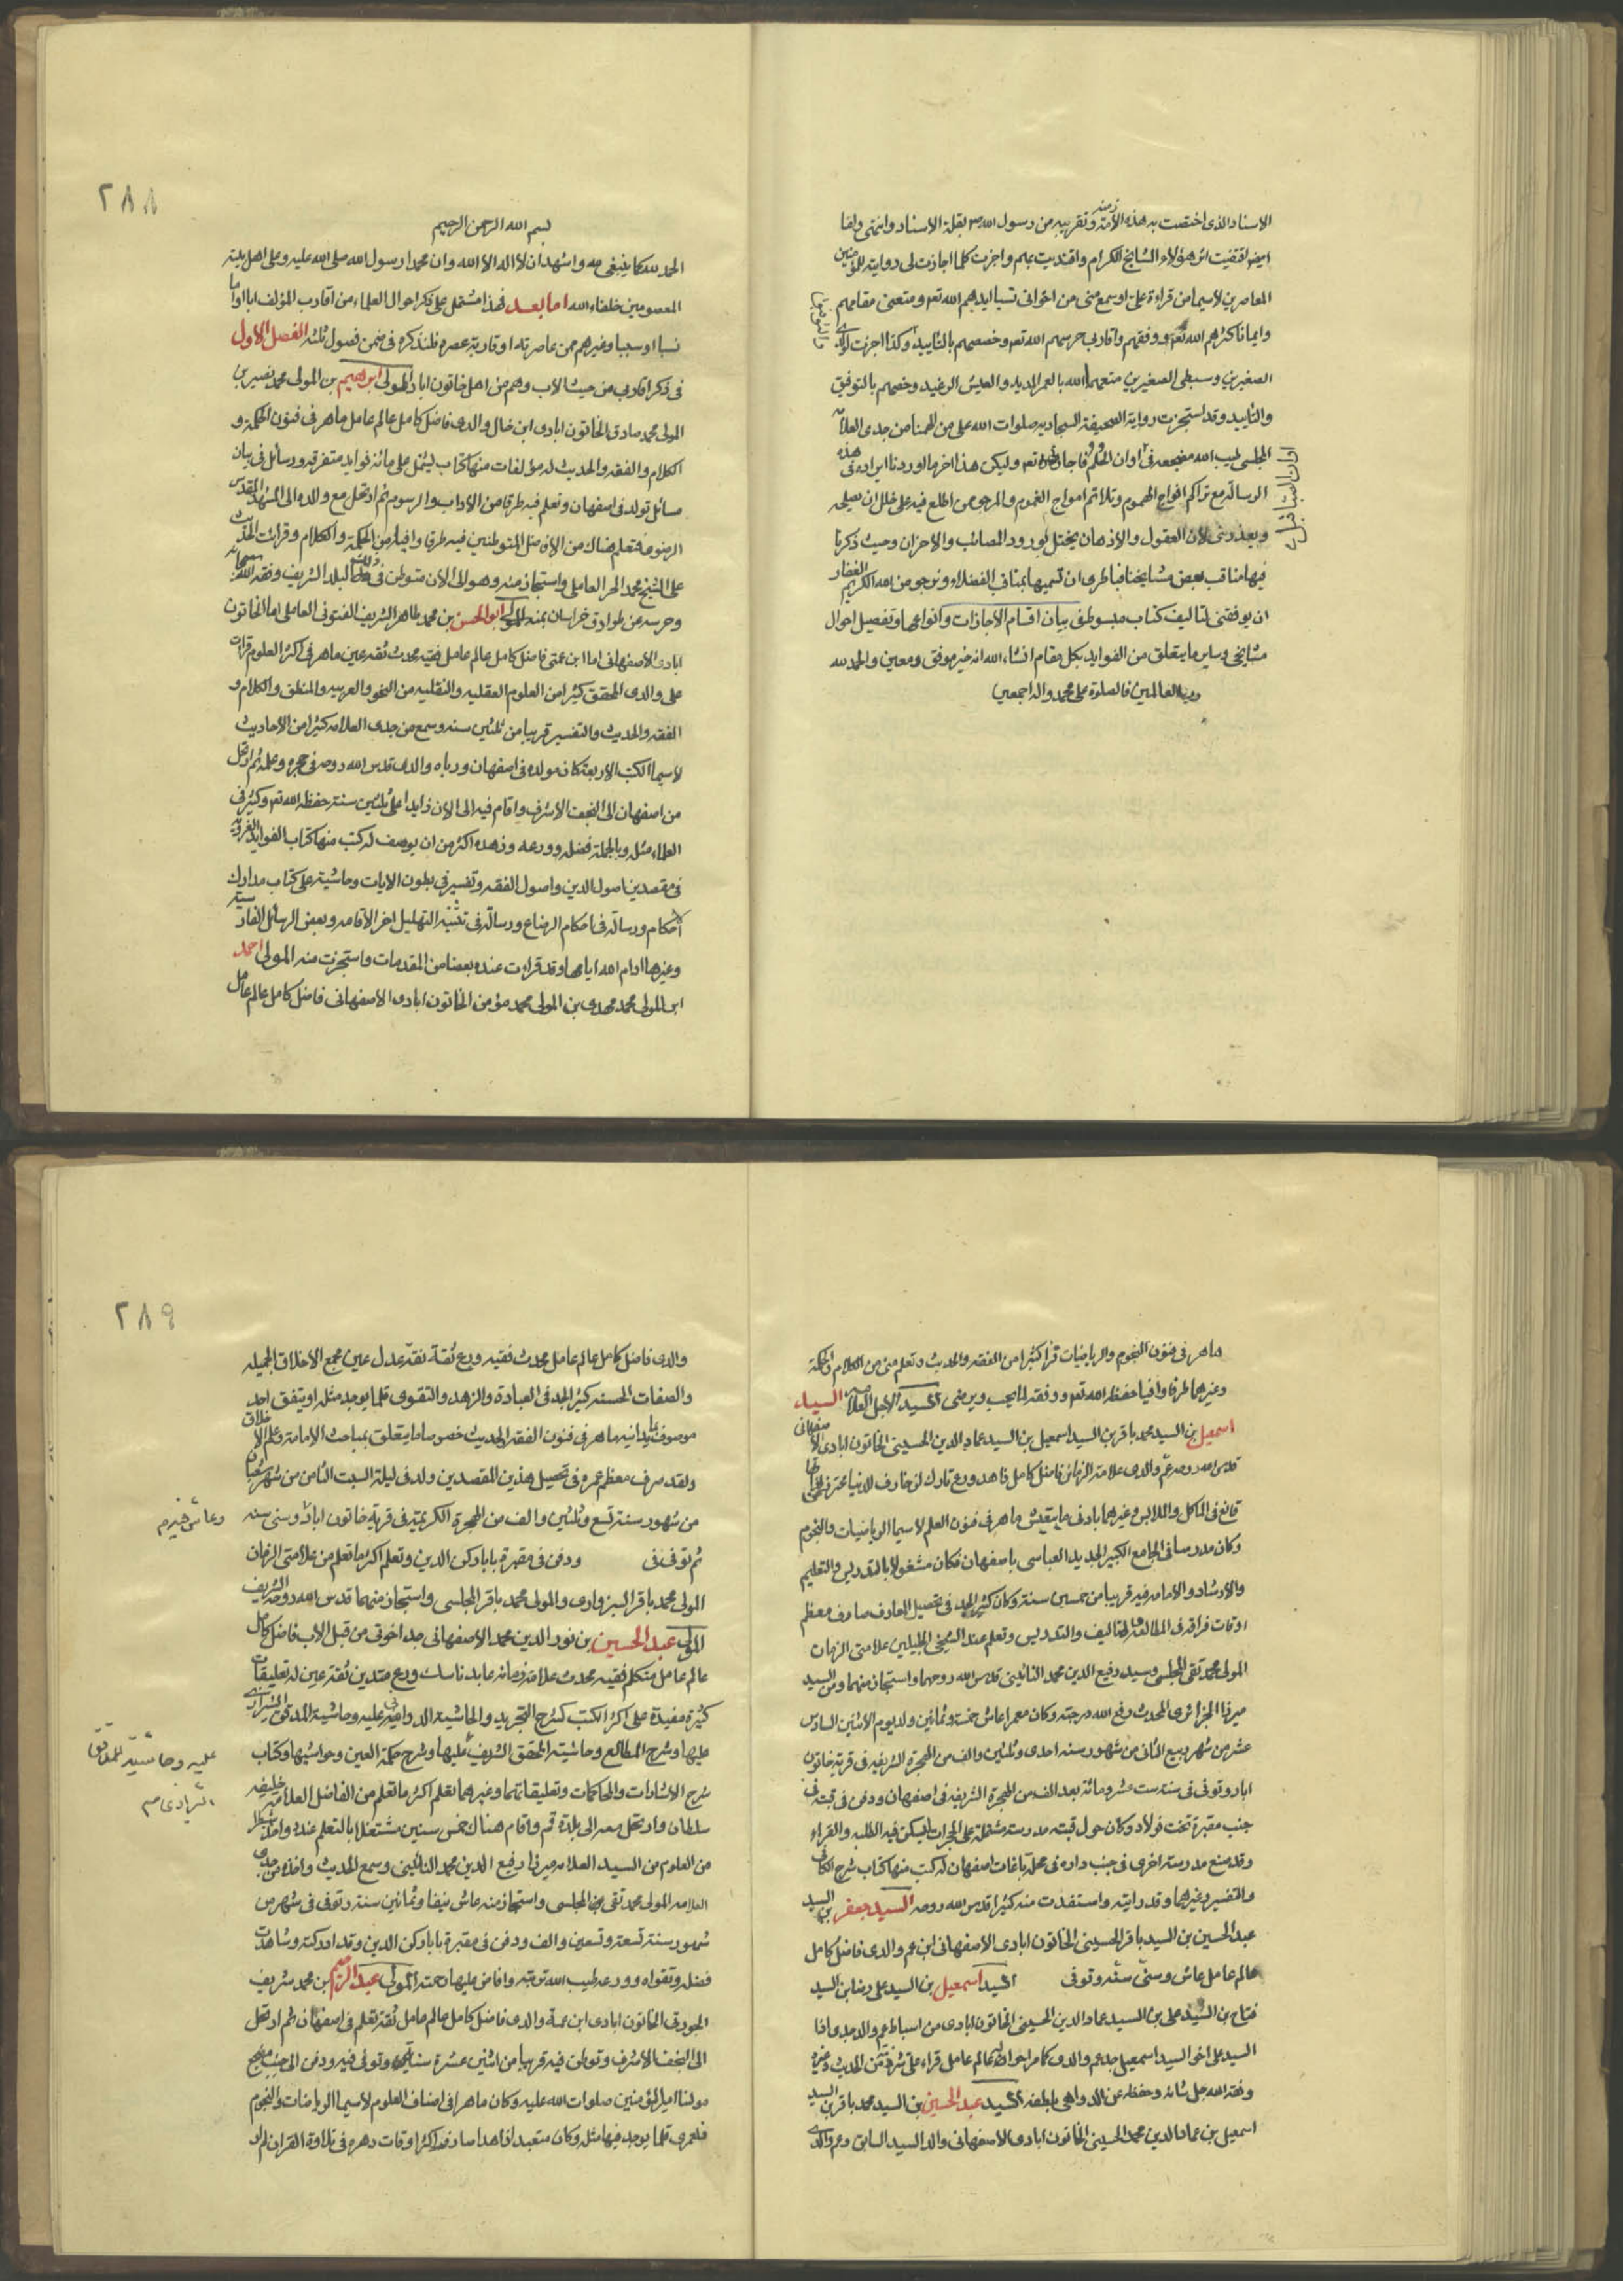 الاسناد الذى اختصت به هذه الامة وتقربه من رسول الله ص بقلة الاسناد وانتمى
ايضا اقتفيت اثر هؤلاء المشايخ الكرام واقتديت بهم واجزت كلما اجازت لى روايته للمؤمنين
المعاصرين لاسيما من قراءة على او سمع منى من اخوانى نسبا ايدهم الله تعه ومتعنى مقامهم
وايمانا كثرهم الله تعه ووفقهم واقاربى حرسهم الله تعه وخصصهم بالتاييد وكذا اجزت لولدى
الصغيرين وسبطى الصغيرين متعهما الله بالعمر المديد والعيش الرغيد وخصهم بالتوفيق
والتاييد وقد استجزت رواية الصحيفة السجادية صلوات الله على من الهمنا من جدى العلامة
المجلسى طيب الله مضجعه فى اوان الحلم فاجازنى تعه وليكن هذا اخر ما اوردنا ايراده فى هذه
الرسالة مع تراكم افواج الهموم وتلاطم امواج الغموم والمرجو من اطلع فيه على خلل ان يصلحه
ويعذرنى لان العقول والاذهان يختل بورود المصائب والاحزان وحيث ذكرنا
فيها مناقب بعض مشايخنا فبالحرى ان نسميها بمناقب الفضلاء ونرجو من الله الكريم الغفار
ان يوفقنى لتاليف كتاب مبسوط فى بيان اقسام الاجازات وانواعها وتفصيل احوال
مشايخى وساير ما يتعلق من الفوايد بكل مقام انشاء الله انه خير موفق ومعين والحمد لله
رب العالمين والصلوة على محمد واله اجمعين
٢٨٨
بسم الله الرحمن الرحيم
الحمد لله كما ينبغى له واشهد ان لا اله الا الله وان محمدا رسول الله صلى الله عليه وعلى اهل بيته
المعصومين خلفاء الله اما بعد فهذا مشتمل على ذكر احوال العلماء من اقارب المؤلف ابا او اما
نسبا او سببا وغيرهم ممن عاصرته او قاربة عصره فلنذكره فى ضمن فصول ثلثه الفصل الاول
فى ذكر اقاربى من حيث الاب وهم من اهل خاتون اباد المولى ابراهيم بن المولى محمد نصير بن
المولى محمد صادق الخاتون ابادى ابن خال والدى فاضل كامل عالم عامل ماهر فى فنون الحكمة و
الكلام والفقه والحديث له مؤلفات منها كتاب يشمل على مائة فوايد متفرقه ورسائل فى بيان
مسائل تولد فى اصفهان وتعلم فيه طرفا من الاداب والرسوم ثم ارتحل مع والده الى المشهد المقدس
الرضوى فتعلم هناك من الافاضل المتوطنين فيه طرفا وافيا من الحكمة والكلام وقرائت الحديث
على الشيخ محمد الحر العاملى واستجاز منه وهو الى الان متوطن فى ذلك البلد الشريف وفقه الله سبحانه
وحرسه عن طوارق خراسان بمنه المولى ابو الحسن بن محمد طاهر الشريف الفتونى العاملى اما الخاتون
ابادى الاصفهانى اما ابن عمتى فاضل كامل عالم عامل فقيه محدث ثقه عين ماهر فى اكثر العلوم قرات
على والدى المحقق كثيرا من العلوم العقليه والنقليه من النحو والعربيه والمنطق والكلام و
الفقه والحديث والتفسير قريبا من ثلثين سنه وسمع من جدى العلامه كثيرا من الاحاديث
لاسيما الكتب الاربعة كان مولده فى اصفهان ورباه والدى قدس الله روحه فى حجره وعلمه ثم ارتحل
من اصفهان الى النجف الاشرف واقام فيه الى الان زايدا على ثلثين سنة حفظه الله تعه وكثر فى
العلماء مثله وبالجملة فضله وورعه وزهده اكثر من ان يوصف له كتب منها كتاب الفوايد الغروية
فى مقصدين اصول الدين واصول الفقه وتفسير فى بطون الايات وحاشية على كتاب مدارك
الاحكام ورسالة فى احكام الرضاع ورسالة فى تثنية التهليل اخر الاقامه وبعض الرسائل الفارسية
وغيرها ادام الله ايامه وقد قراءت عنده بعضا من المقدمات واستجزت منه المولى احمد
ابن المولى محمد مهدى بن المولى محمد مؤمن الخاتون ابادى الاصفهانى فاضل كامل عالم عامل
ماهر فى فنون النجوم والرياضيات قرا كثيرا من الفقه والحديث وتعلم منى من الكلام والحكمة
وغيرهما طرفا وافيا حفظه الله تعه ووفقه لما يحب ويرضى السيد الاجل العلامه السيد
اسمعيل بن السيد محمد باقر بن السيد اسمعيل بن السيد عماد الدين الحسينى الخاتون ابادى الاصفهانى
قدس الله روحه عم والدى علامة الزمان فاضل كامل زاهد ورع تارك لزخارف الدنيا
قانع فى الماكل والملابس وغيرهما بادنى ما يتعيش ماهر فى فنون العلم لاسيما الرياضيات والنجوم
وكان مدرسا فى الجامع الكبير الجديد العباسى باصفهان فكان مشغولا بالتدريس والتعليم
والارشاد والامامه فيه قريبا من خمسين سنة وكان كثير الجد فى تحصيل المعارف صارف معظم
اوقات فراقه فى المطالعة والتاليف والتدريس وتعلم عند الشيخين الجليلين علامتى الزمان
المولى محمد تقى المجلسى وسيد رفيع الدين محمد النائينى قدس الله روحهما واستجاز منهما ومن السيد
ميرزا الجزائرى المحدث رفع الله درجته وكان معمرا عاش خمسة وثمانين ولد يوم الاثنين السادس
عشر من شهر ربيع الثانى من شهور سنه احدى وثلثين والف من الهجرة الشريفه فى قرية خاتون
اباد وتوفى فى سنه ست عشر ومائة بعد الف من الهجرة الشريفه فى اصفهان ودفن فى قبته فى
جنب مقبرة تخت فولاد وكان حول قبته مدرسة مشتملة على الحجرات ليسكن فيه الطلبه والقراء
وقد صنع مدرسة اخرى فى جنب داره فى محلة باغات اصفهان له كتب منها كتاب شرح الكافى
والتفسير وغيرهما وقد رايته واستفدت منه كثيرا قدس الله روحه السيد جعفر بن السيد
عبد الحسين بن السيد باقر الحسينى الخاتون ابادى الاصفهانى ابن عم والدى فاضل كامل
عالم عامل عاش وسنى سنه وتوفى السيد اسمعيل بن السيد على رضا بن السيد
فتاح بن السيد على بن السيد عماد الدين الحسينى الخاتون ابادى من اسباط عم والد جدى اقا
السيد على اخو السيد اسمعيل جد عم والدى كامر احواله عالم عامل قراء على الحديث وغيره
وفقه الله جل شانه وحفظه عن الدواهى بلطفه السيد عبد الحسين بن السيد محمد باقر بن السيد
اسمعيل بن عماد الدين محمد الحسينى الخاتون ابادى الاصفهانى والد السيد السابق وعم والدى
٢٨٩
والدى فاضل كامل عالم عامل محدث فقيه ورع ثقة نقة عدل عين مجمع الاخلاق الجميله
والصفات الحسنه كثير الجد فى العبادة والزهد والتقوى قلما يوجد مثله او يتفق احد
موصوف يدانيه ماهر فى فنون الفقه الحديث خصوصا ما يتعلق بمباحث الامامة وعلم الاخلاق
ولقد صرف معظم عمره فى تحصيل هذين المقصدين ولد فى ليلة السبت الثامن من شهر شعبان
من شهور سنة تسع وثلثين والف من الهجرة الكريمة فى قرية خاتون اباد وسنى سنه
وعاش خيرم
ثم توفى فى ودفن فى مقبرة بابا ركن الدين وتعلم اكثر ما تعلم من علامتى الزمان
المولى محمد باقر السبزوارى والمولى محمد باقر المجلسى واستجاز منهما قدس الله روحه الشريف
المولى عبد الحسين بن نور الدين محمد الاصفهانى جد اخوتى من قبل الاب فاضل كامل
عالم عامل متكلم فقيه محدث علامة زمانه عابد ناسك ورع متدين ثقة عين له تعليقات
كثيرة مفيدة على اكثر الكتب كشرح التجريد والحاشية الدوانية عليه وحاشية المدقق الشيرازى
عليه وحاشية للمدقق الشيرازى م
عليها وشرح المطالع وحاشية المحقق الشريف عليها وشرح حكمة العين وحواشيها وكتاب
شرح الاشارات والمحاكمات وتعليقاتهما وغيرهما تعلم اكثر ما تعلم من الفاضل العلامة خليفه
سلطان وارتحل معه الى بلدة قم واقام هناك خمس سنين مشتغلا بالتعلم عنده واخذ شطرا
من العلوم من السيد العلامه ميرزا رفيع الدين محمد النائينى وسمع الحديث واخذه من جدى
العلامه المولى محمد تقى المجلسى واستجاز منه عاش نيفا وثمانين سنة وتوفى فى شهر من
شهور سنة تسعة وتسعين والف ودفن فى مقبرة بابا ركن الدين وقد ادركته وشاهدت
فضله وتقواه وورعه طيب الله تربته وافاض عليها رحمته المولى عبد الرحيم بن محمد شريف
الجورتى الخاتون ابادى ابن عمة والدى فاضل كامل عالم عامل ثقة تعلم فى اصفهان ثم ارتحل
الى النجف الاشرف وتوطن فيه قريبا من اثنين عشرة سنة وتوفى فيه ودفن الى جنب مضجع
مولينا امير المؤمنين صلوات الله عليه وكان ماهرا فى اصناف العلوم لاسيما الرياضات والنجوم
فلعمرى قلما يوجد فيها مثله وكان متعبدا زاهدا صارفه اكثر اوقات دهره فى تلاوة القران